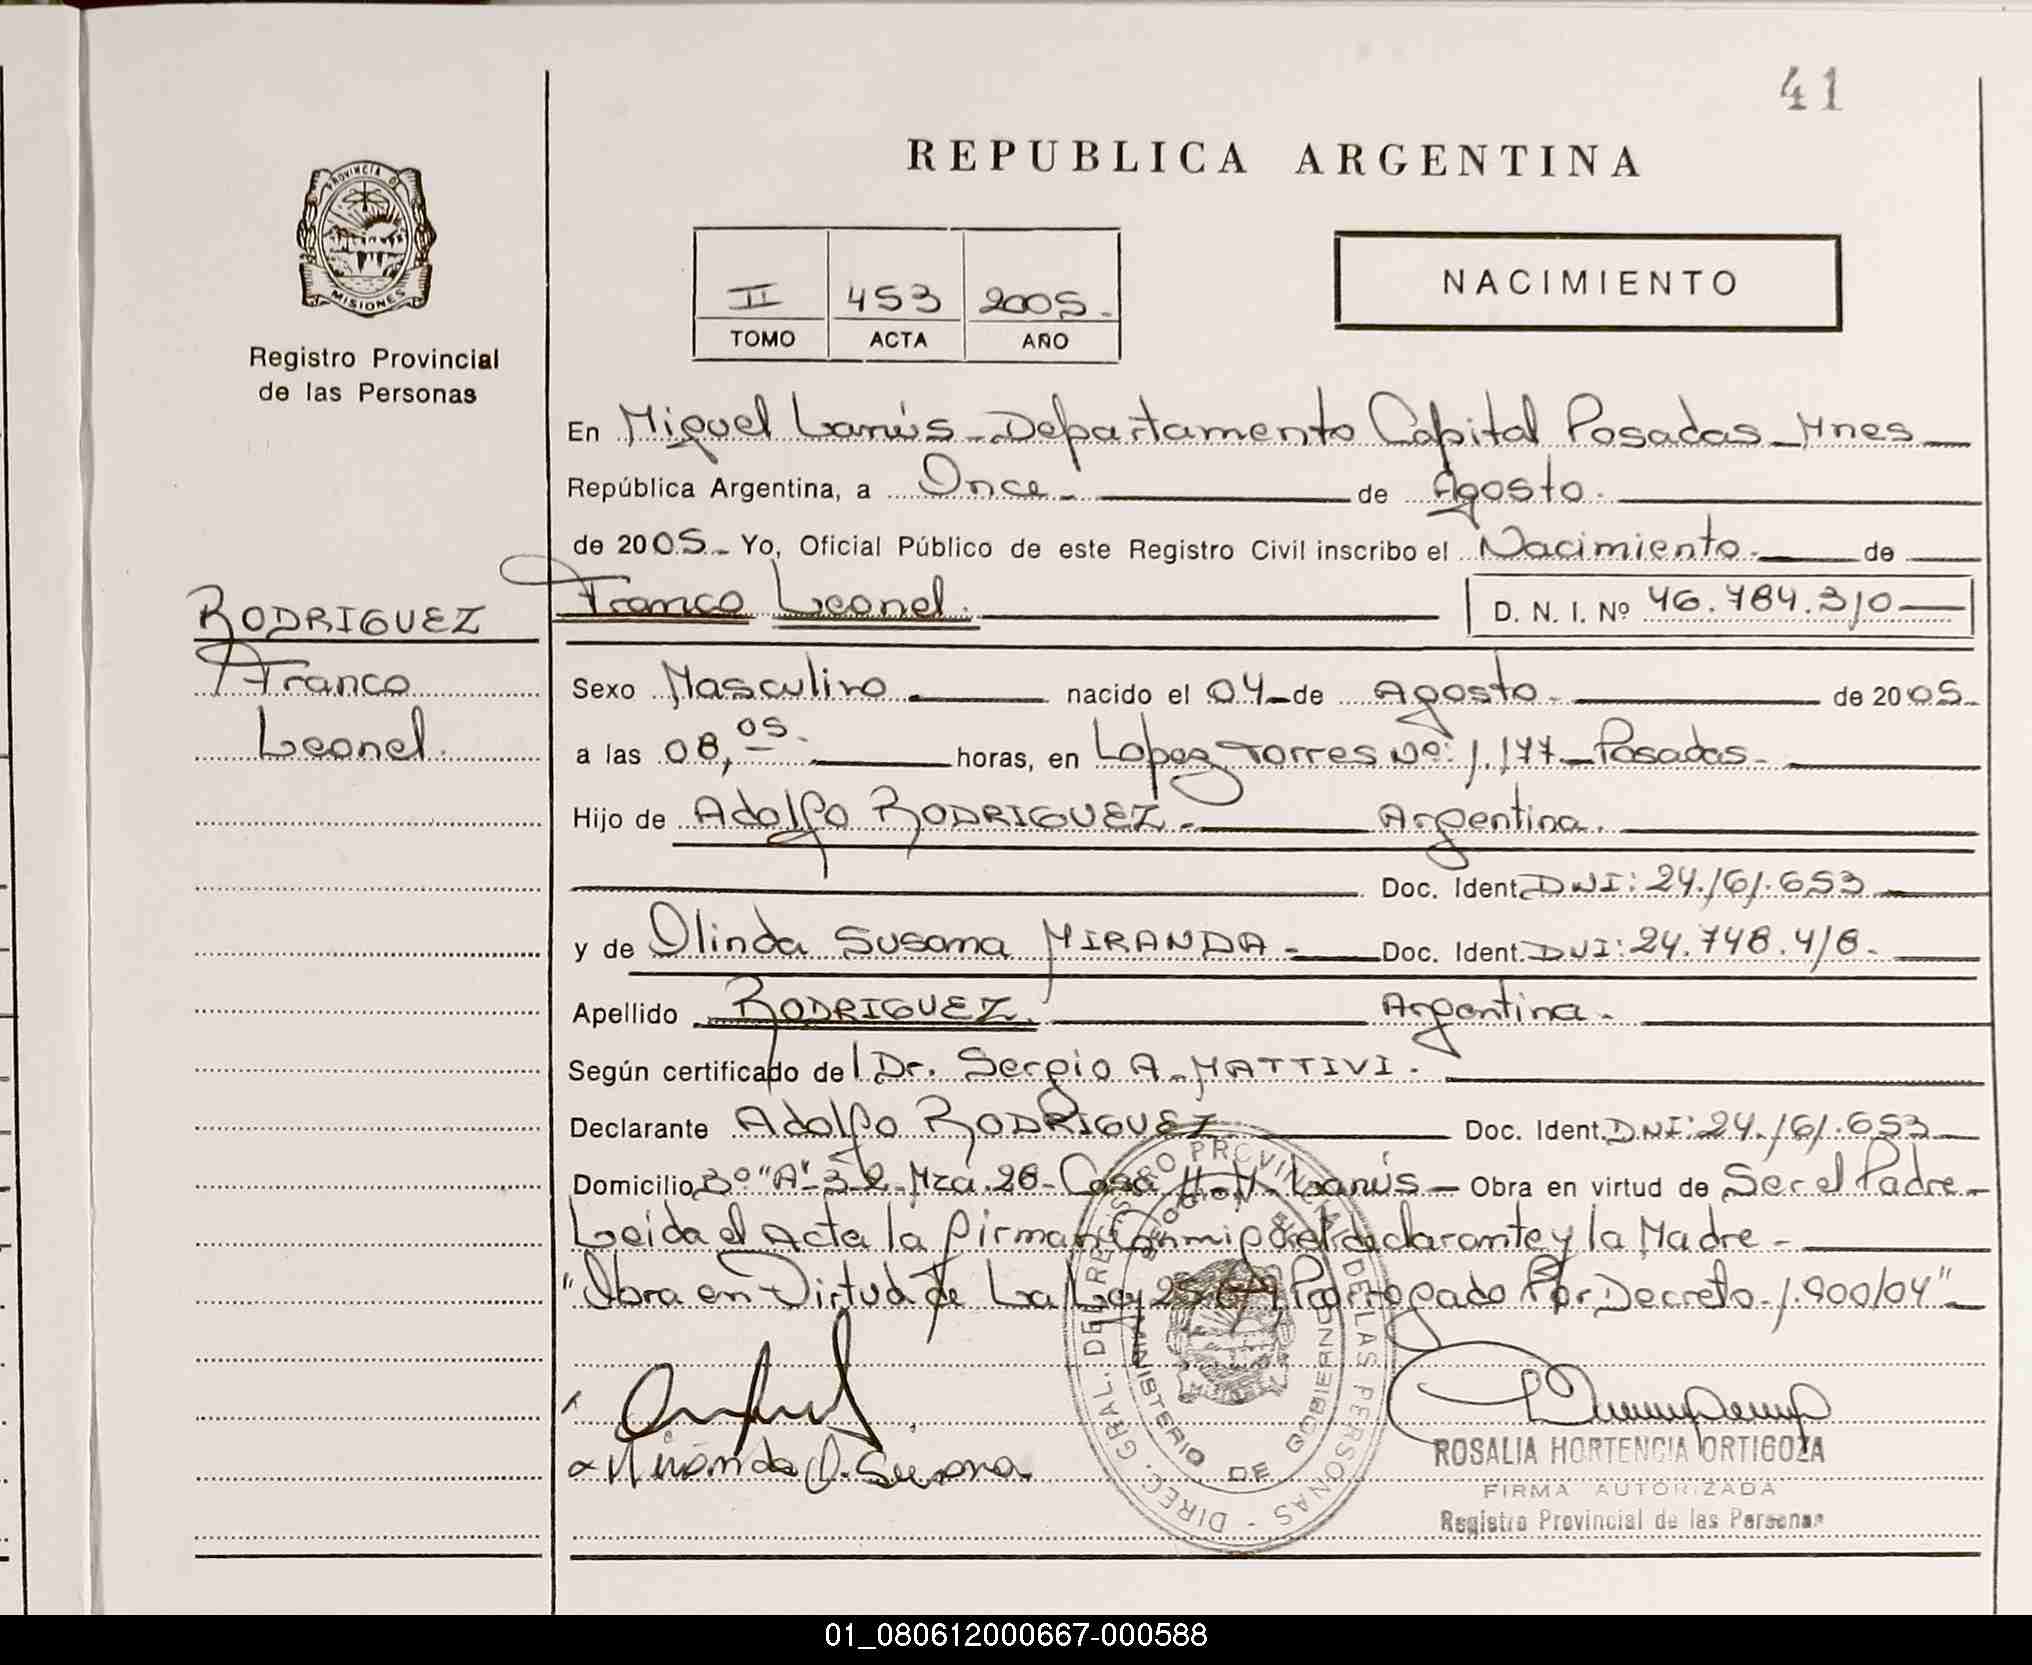 41
REPUBLICA ARGENTINA
PROVINCIA DE
MISIONES
Registro Provincial
de las Personas
II 453 2005.
TOMO ACTA AÑO
NACIMIENTO
En Miguel Lanús - Departamento Capital Posadas - Mnes
República Argentina, a Once - de Agosto.
de 2005 - Yo, Oficial Público de este Registro Civil inscribo el Nacimiento - de
RODRIGUEZ
Franco
Leonel.
Franco Leonel. D. N. I. Nº 46.784.310
Sexo Masculino nacido el 04 - de Agosto - de 2005-
a las 08,05. horas, en Lopez Torres Nº: 1.177 - Posadas -
Hijo de Adolfo RODRIGUEZ - Argentina.
Doc. Ident. DNI: 24.161.653
y de Olinda Susana MIRANDA - Doc. Ident. DNI: 24.748.418 -
Apellido RODRIGUEZ. Argentina -
Según certificado del Dr. Sergio A. MATTIVI.
Declarante Adolfo RODRIGUEZ Doc. Ident. DNI: 24.161.653
Domicilio Bº "A" 3-2 - Mza. 28 - Casa Lanús - Obra en virtud de Ser el Padre -
Leida el Acta la firman Conmigo el declarante y la Madre -
"Obra en Virtud de La Ley Prorrogado Por Decreto 1.900/04" -
Miranda O. Susana
DIREC. GRAL. DE REGISTRO PROVINCIAL DE LAS PERSONAS
MINISTERIO DE GOBIERNO
ROSALIA HORTENCIA ORTIGOZA
FIRMA AUTORIZADA
Registro Provincial de las Personas
01_080612000667-000588